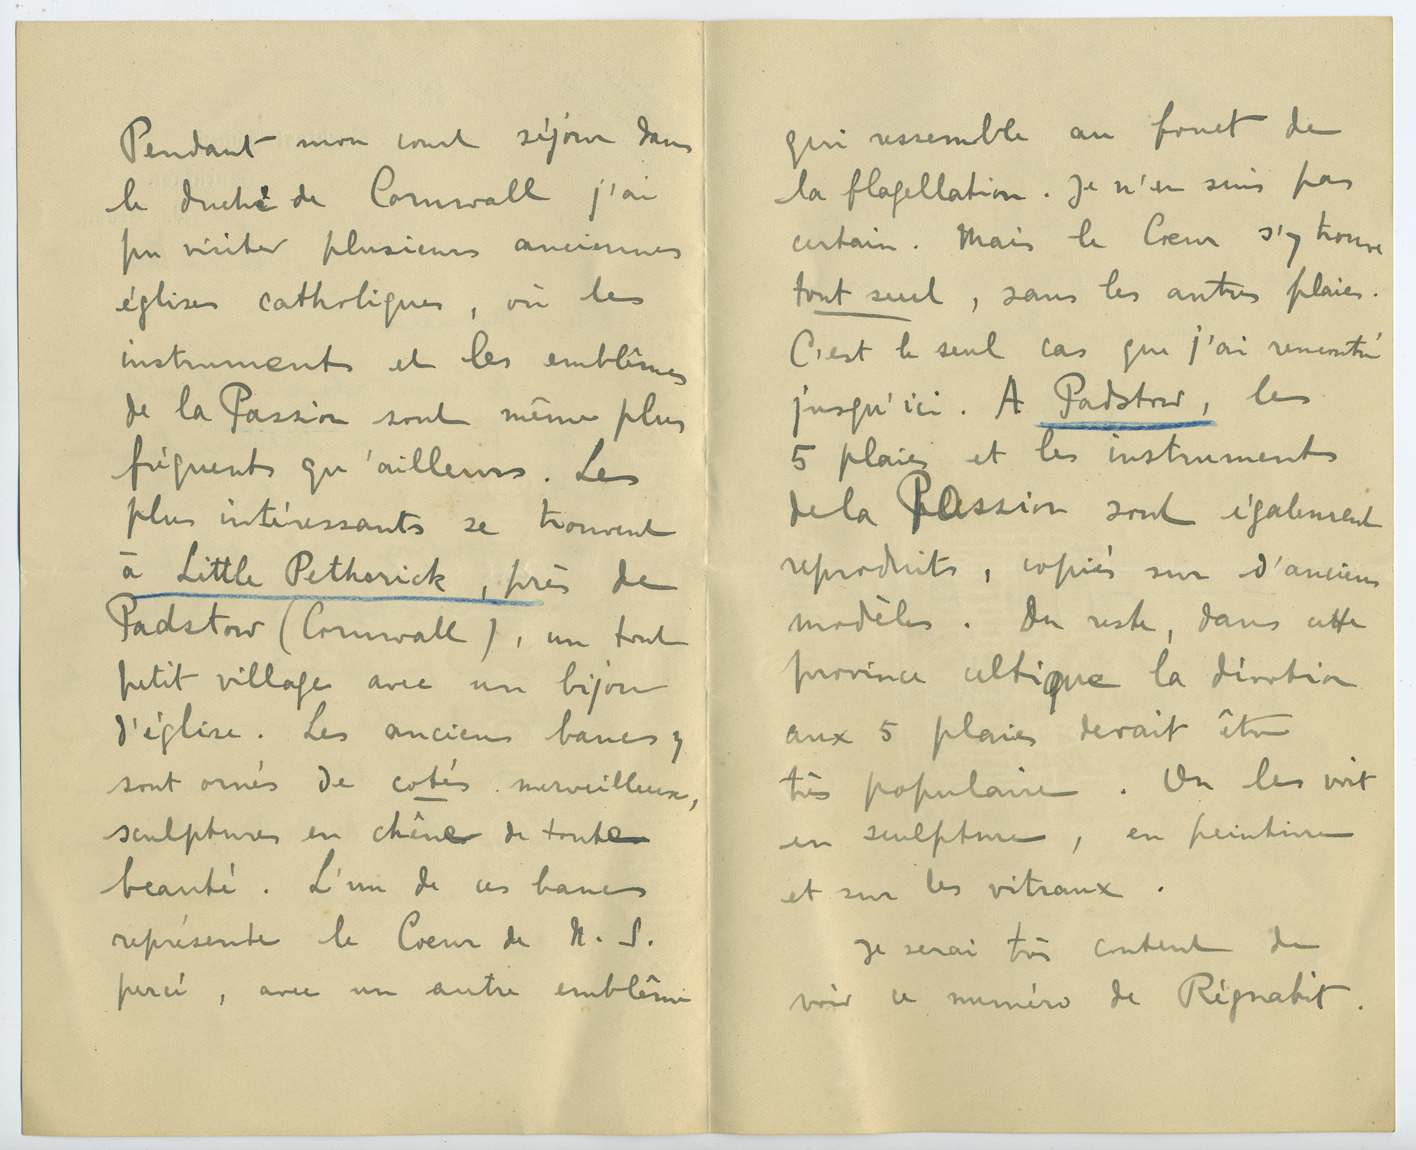 Pendant mon court séjour dans
le duché de Cornwall j'ai
pu visiter plusieurs anciennes
églises catholiques, où les
instruments et les emblêmes
de la Passion sont même plus
fréquents qu'ailleurs. Les
plus intéressants se trouvent
à Little Petherick, près de
Padstow (Cornwall), un tout
petit village avec un bijou
d'église. Les anciens bancs y
sont ornés de cotés merveilleux,
sculptures en chêne de toute
beauté. L'un de ces bancs
représente le Coeur de N. S.
percé, avec un autre emblême
qui ressemble au fouet de
la flagellation. Je n'en suis pas
certain. Mais le Coeur s'y trouve
tout seul, sans les autres plaies.
C'est le seul cas que j'ai rencontré
jusqu'ici. A Padstow, les
5 plaies et les instruments
de la Passion sont également
reproduits, copiés sur d'anciens
modèles. Du reste, dans cette
province celtique la dévotion
aux 5 plaies devait être
très populaire. On les voit
en sculpture, en peinture
et sur les vitraux.
Je serai très content de
voir ce numéro de Régnabit.